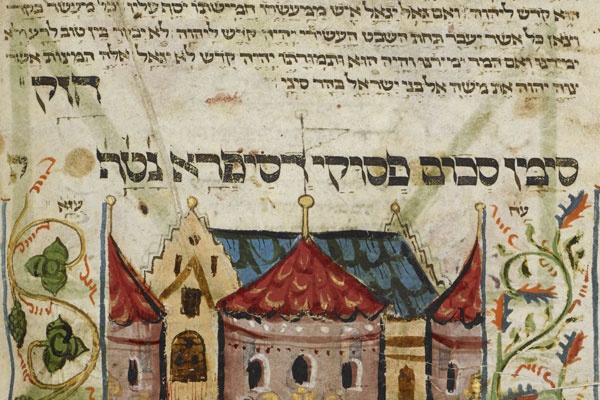 הוא קדש ליהוה ואם גאל יגאל איש ממעשרו חמישתו יסף עליו וכל מעשר בקר
וצאן כל אשר יעבר תחת השבט העשירי יהיה קדש ליהוה לא יבקר בין טוב לרע ולא
ימירנו ואם המר ימירנו והיה הוא ותמורתו יהיה קדש לא יגאל אלה המצות אשר
צוה יהוה את משה אל בני ישראל בהר סיני
חזק
סימן סכום פסוקי דסיפרא נטה